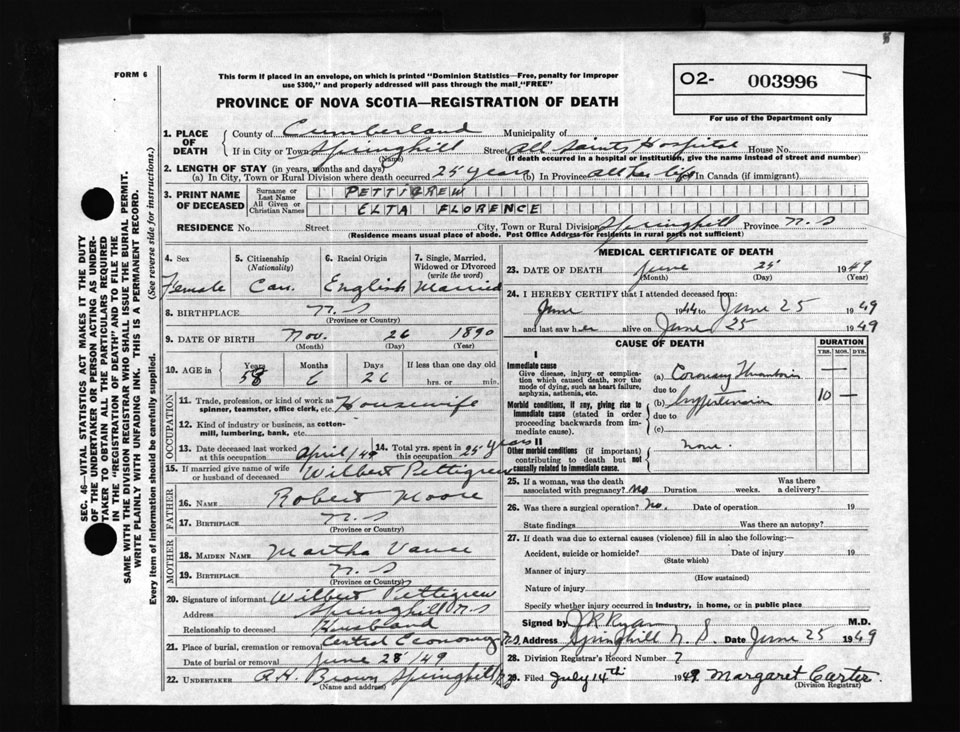 FORM 6
This form if placed in an envelope, on which is printed "Dominion Statistics—Free, penalty for improper
use $300," and properly addressed will pass through the mail "FREE"
O2- 003996
For use of the Department only
PROVINCE OF NOVA SCOTIA—REGISTRATION OF DEATH
SEC. 46—VITAL STATISTICS ACT MAKES IT THE DUTY
OF THE UNDERTAKER OR PERSON ACTING AS UNDER-
TAKER TO OBTAIN ALL THE PARTICULARS REQUIRED
IN THE "REGISTRATION OF DEATH" AND TO FILE THE
SAME WITH THE DIVISION REGISTRAR WHO SHALL ISSUE THE BURIAL PERMIT.
WRITE PLAINLY WITH UNFADING INK. THIS IS A PERMANENT RECORD.
(See reverse side for instructions.)
Every item of Information should be carefully supplied.
1. PLACE OF DEATH
County of Cumberland Municipality of
If in City or Town Springhill Street All Saints Hospital House No.
(Name) (If death occurred in a hospital or institution, give the name instead of street and number)
2. LENGTH OF STAY (in years, months and days)
(a) In City, Town or Rural Division where death occurred 25 years (b) In Province all her life In Canada (if immigrant)
3. PRINT NAME OF DECEASED
Surname or Last Name PETTIGREW
All Given or Christian Names ELTA FLORENCE
RESIDENCE No. Street City, Town or Rural Division Springhill Province N.S
(Residence means usual place of abode. Post Office Address for residents in rural parts not sufficient)
4. Sex Female
5. Citizenship (Nationality) Can.
6. Racial Origin English
7. Single, Married, Widowed or Divorced (write the word) Married
8. BIRTHPLACE N.S
(Province or Country)
9. DATE OF BIRTH Nov. 26 1890
(Month) (Day) (Year)
10. AGE in Years 58 Months 6 Days 26 If less than one day old
hrs. or min.
OCCUPATION
11. Trade, profession, or kind of work as
spinner, teamster, office clerk, etc. Housewife
12. Kind of industry or business, as cotton-
mill, lumbering, bank, etc.
13. Date deceased last worked at this occupation April/49
14. Total yrs. spent in this occupation 25 years
15. If married give name of wife
or husband of deceased Wilbert Pettigrew
FATHER
16. Name Robert Moore
17. Birthplace N.S
(Province or Country)
MOTHER
18. Maiden Name Martha Vance
19. Birthplace N.S
(Province or Country)
20. Signature of informant Wilbert Pettigrew
Address Springhill N.S
Relationship to deceased Husband
21. Place of burial, cremation or removal Central Economy N.S
Date of burial or removal June 28/49
22. Undertaker A.H. Brown Springhill
(Name and address)
MEDICAL CERTIFICATE OF DEATH
23. DATE OF DEATH June 25 1949
(Month) (Day)
24. I HEREBY CERTIFY that I attended deceased from:
June 1944 to June 25 1949
and last saw her alive on June 25 1949
CAUSE OF DEATH
DURATION
YRS. MOS. DYS.
I
Immediate cause
Give disease, injury or complica-
tion which caused death, not the
mode of dying, such as heart failure,
asphyxia, asthenia, etc.
(a) Coronary Thrombosis —
due to
Morbid conditions, if any, giving rise to
immediate cause (stated in order
proceeding backwards from im-
mediate cause).
(b) hypertension 10 —
due to
(c)
II
Other morbid conditions (if important)
contributing to death but not
causally related to immediate cause.
none.
25. If a woman, was the death Was there
associated with pregnancy? No Duration weeks. a delivery?
26. Was there a surgical operation? No. Date of operation 19
State findings Was there an autopsy?
27. If death was due to external causes (violence) fill in also the following:—
Accident, suicide or homicide? Date of injury 19
(State which)
Manner of injury
(How sustained)
Nature of injury
Specify whether injury occurred in industry, in home, or in public place
Signed by J.R. Ryan M.D.
Address Springhill N.S Date June 25 1949
28. Division Registrar's Record Number 7
29. Filed July 14th 1949 Margaret Carter
(Division Registrar)